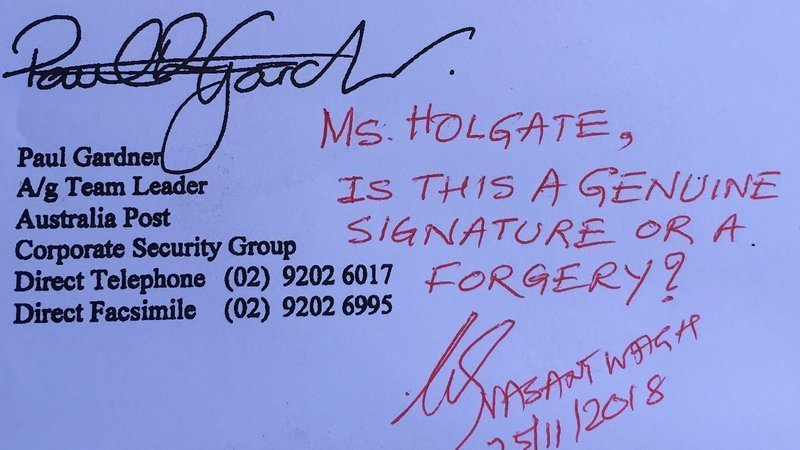 Paul Gardner
Paul Gardner
A/g Team Leader
Australia Post
Corporate Security Group
Direct Telephone (02) 9202 6017
Direct Facsimile (02) 9202 6995
MS. HOLGATE,
IS THIS A GENUINE
SIGNATURE OR A
FORGERY?
VASANT WAGH
25/11/2018